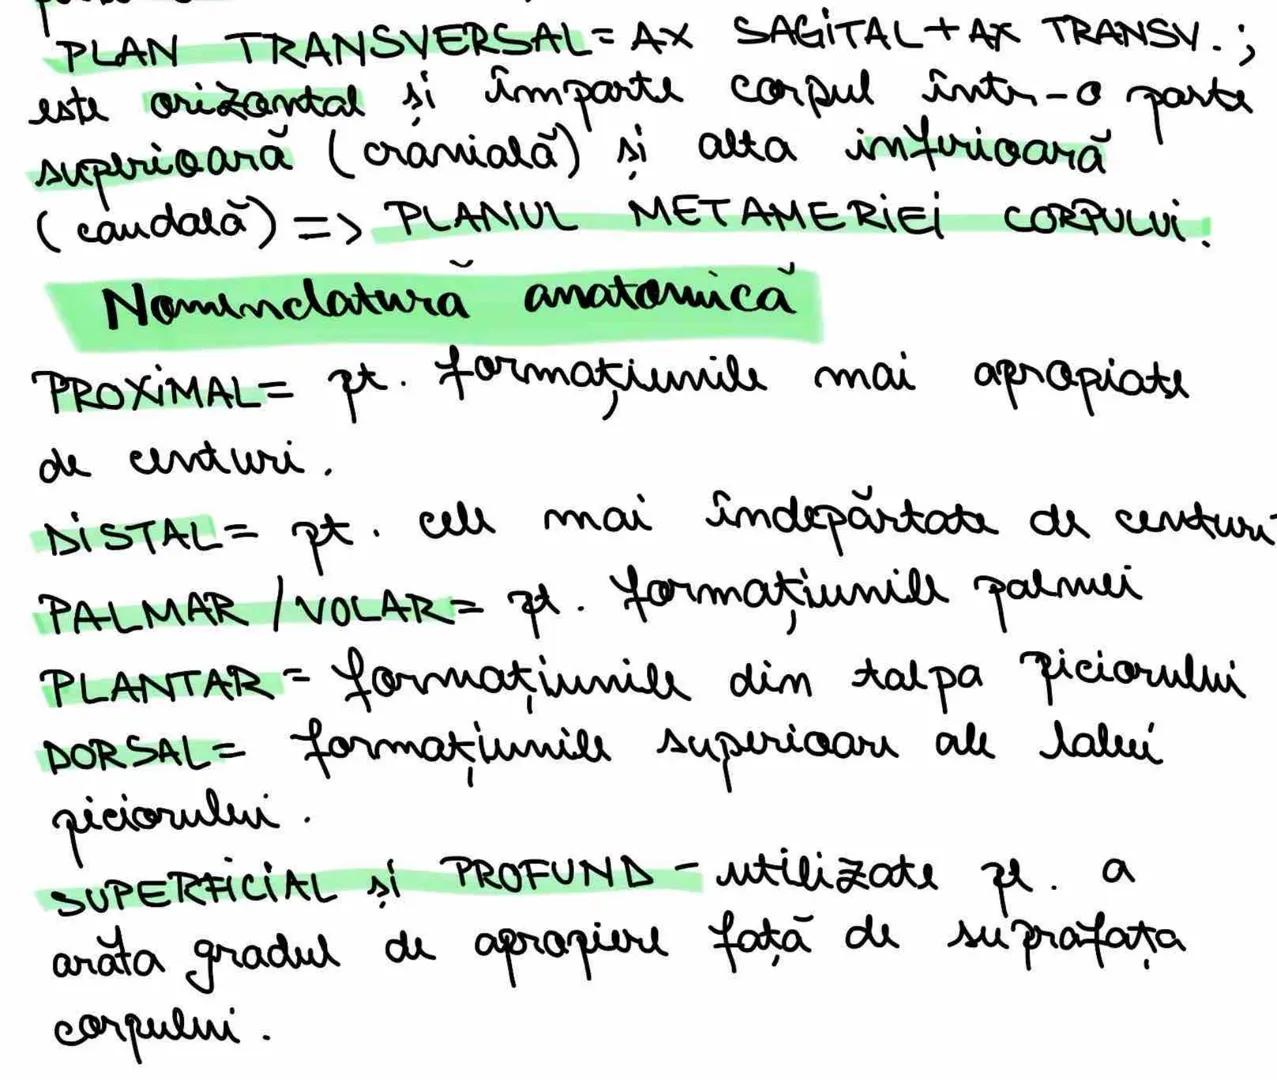 PLAN TRANSVERSAL= AX SAGITAL + AX TRANSV.;
este orizontal și împarte corpul într-o parte
superioară (cranială) și alta inferioară
(caudală) => PLANUL METAMERIEI CORPULUI.
Nomenclatură anatomică
PROXIMAL= pt. formațiunile mai apropiate
de centuri.
DISTAL= pt. cele mai îndepărtate de centuri
PALMAR / VOLAR= pt. formațiunile palmei
PLANTAR= formațiunile din talpa piciorului
DORSAL= formațiunile superioare ale labei
piciorului.
SUPERFICIAL și PROFUND - utilizate pt. a
arăta gradul de apropiere față de suprafața
corpului.